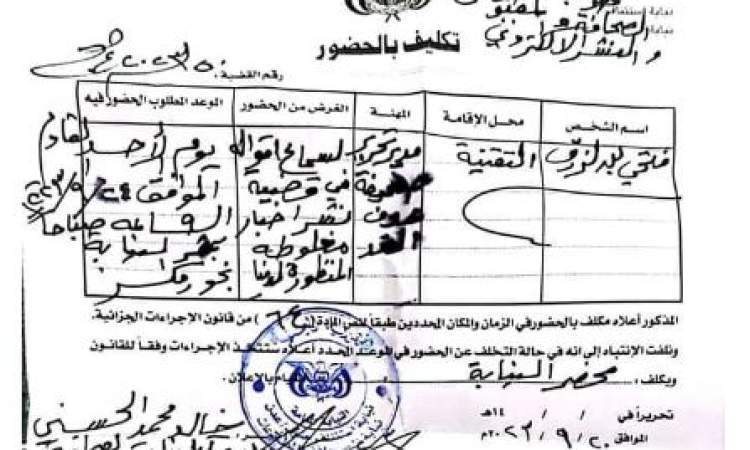 نيابة استئناف
الصحافة و
والنشر الإلكتروني
تكليف بالحضور
رقم القضية:
اسم الشخص
محل الإقامة
المهنة
الغرض من الحضور
الموعد المطلوب الحضور فيه
فتحي
التقنية
مدير تحرير
صحيفة
لسماع اقواله
في قضية
نشر اخبار
مغلوطه
المنظورة لدينا
يوم الأحد القادم
الموافق ٢٤/٩/٢٠٢٣
الساعه صباحا
بمقر النيابة
بخور مكسر
المذكور أعلاه مكلف بالحضور في الزمان والمكان المحددين طبقاً لنص المادة (٦٤) من قانون الإجراءات الجزائية.
ونلفت الإنتباه إلى انه في حالة التخلف عن الحضور في الموعد المحدد أعلاه ستتخذ الإجراءات وفقاً للقانون
ويكلف / محضر النيابة بالإعلان.
تحريراً في / / ١٤هـ
الموافق ٢٠/٩/٢٠٢٣م
خالد محمد الحسيني